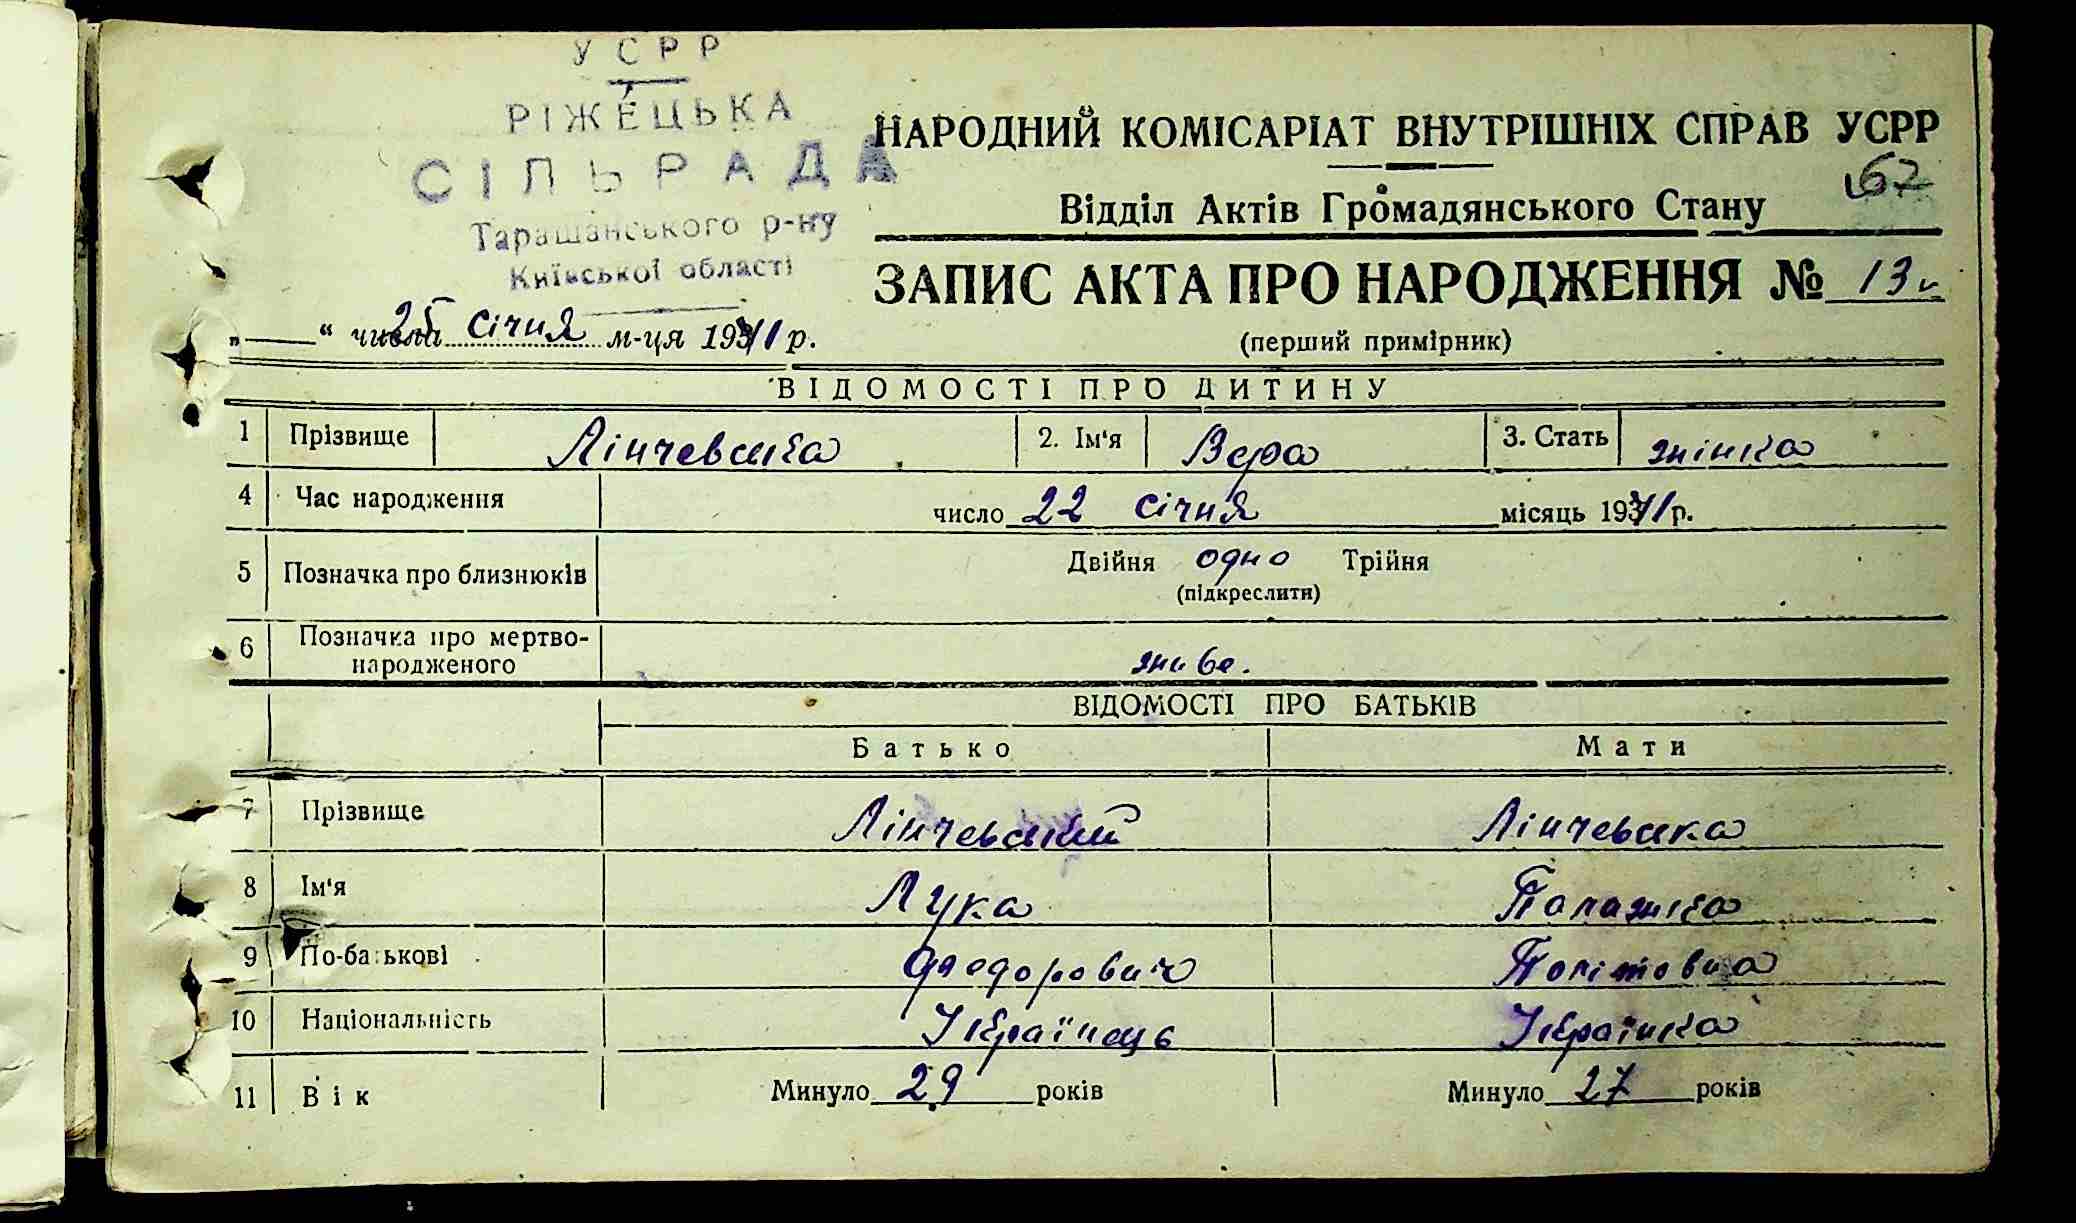 УСРР
РІЖЕЦЬКА
СІЛЬРАДА
Тарашанського р-ну
Київської області
НАРОДНИЙ КОМІСАРІАТ ВНУТРІШНІХ СПРАВ УСРР
67
Відділ Актів Громадянського Стану
ЗАПИС АКТА ПРО НАРОДЖЕННЯ № 13
„ “ числа 25 січня м-ця 1941 р.
(перший примірник)
ВІДОМОСТІ ПРО ДИТИНУ
1 Прізвище Лінчевська 2. Ім'я Вера 3. Стать жінка
4 Час народження число 22 січня місяць 1941 р.
5 Позначка про близнюків Двійня одно Трійня
(підкреслити)
6 Позначка про мертво-
народженого живе.
ВІДОМОСТІ ПРО БАТЬКІВ
Батько Мати
7 Прізвище Лінчевський Лінчевська
8 Ім'я Лука Палажка
9 По-батькові Федорович
10 Національність Українець Українка
11 Вік Минуло 29 років Минуло 27 років